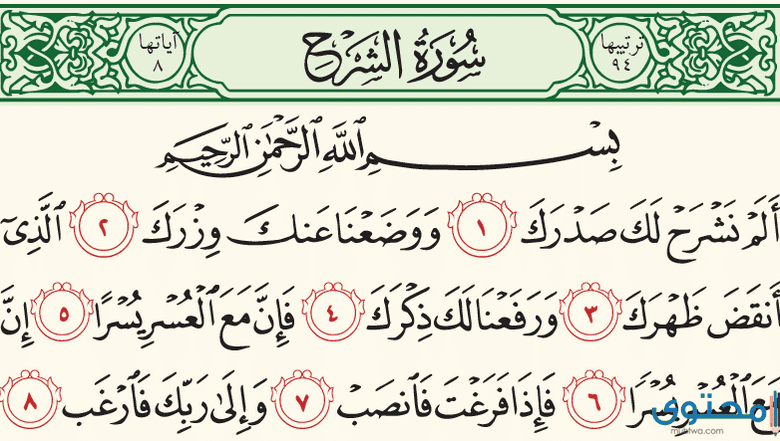 ترتيبها
٩٤
سُورَةُ الشَّرْحِ
آياتها
٨
بِسْمِ ٱللَّهِ ٱلرَّحْمَٰنِ ٱلرَّحِيمِ
أَلَمْ نَشْرَحْ لَكَ صَدْرَكَ ١ وَوَضَعْنَا عَنكَ وِزْرَكَ ٢ ٱلَّذِىٓ
أَنقَضَ ظَهْرَكَ ٣ وَرَفَعْنَا لَكَ ذِكْرَكَ ٤ فَإِنَّ مَعَ ٱلْعُسْرِ يُسْرًا ٥ إِنَّ
مَعَ ٱلْعُسْرِ يُسْرًا ٦ فَإِذَا فَرَغْتَ فَٱنصَبْ ٧ وَإِلَىٰ رَبِّكَ فَٱرْغَب ٨
محتوى
muhtwa.com